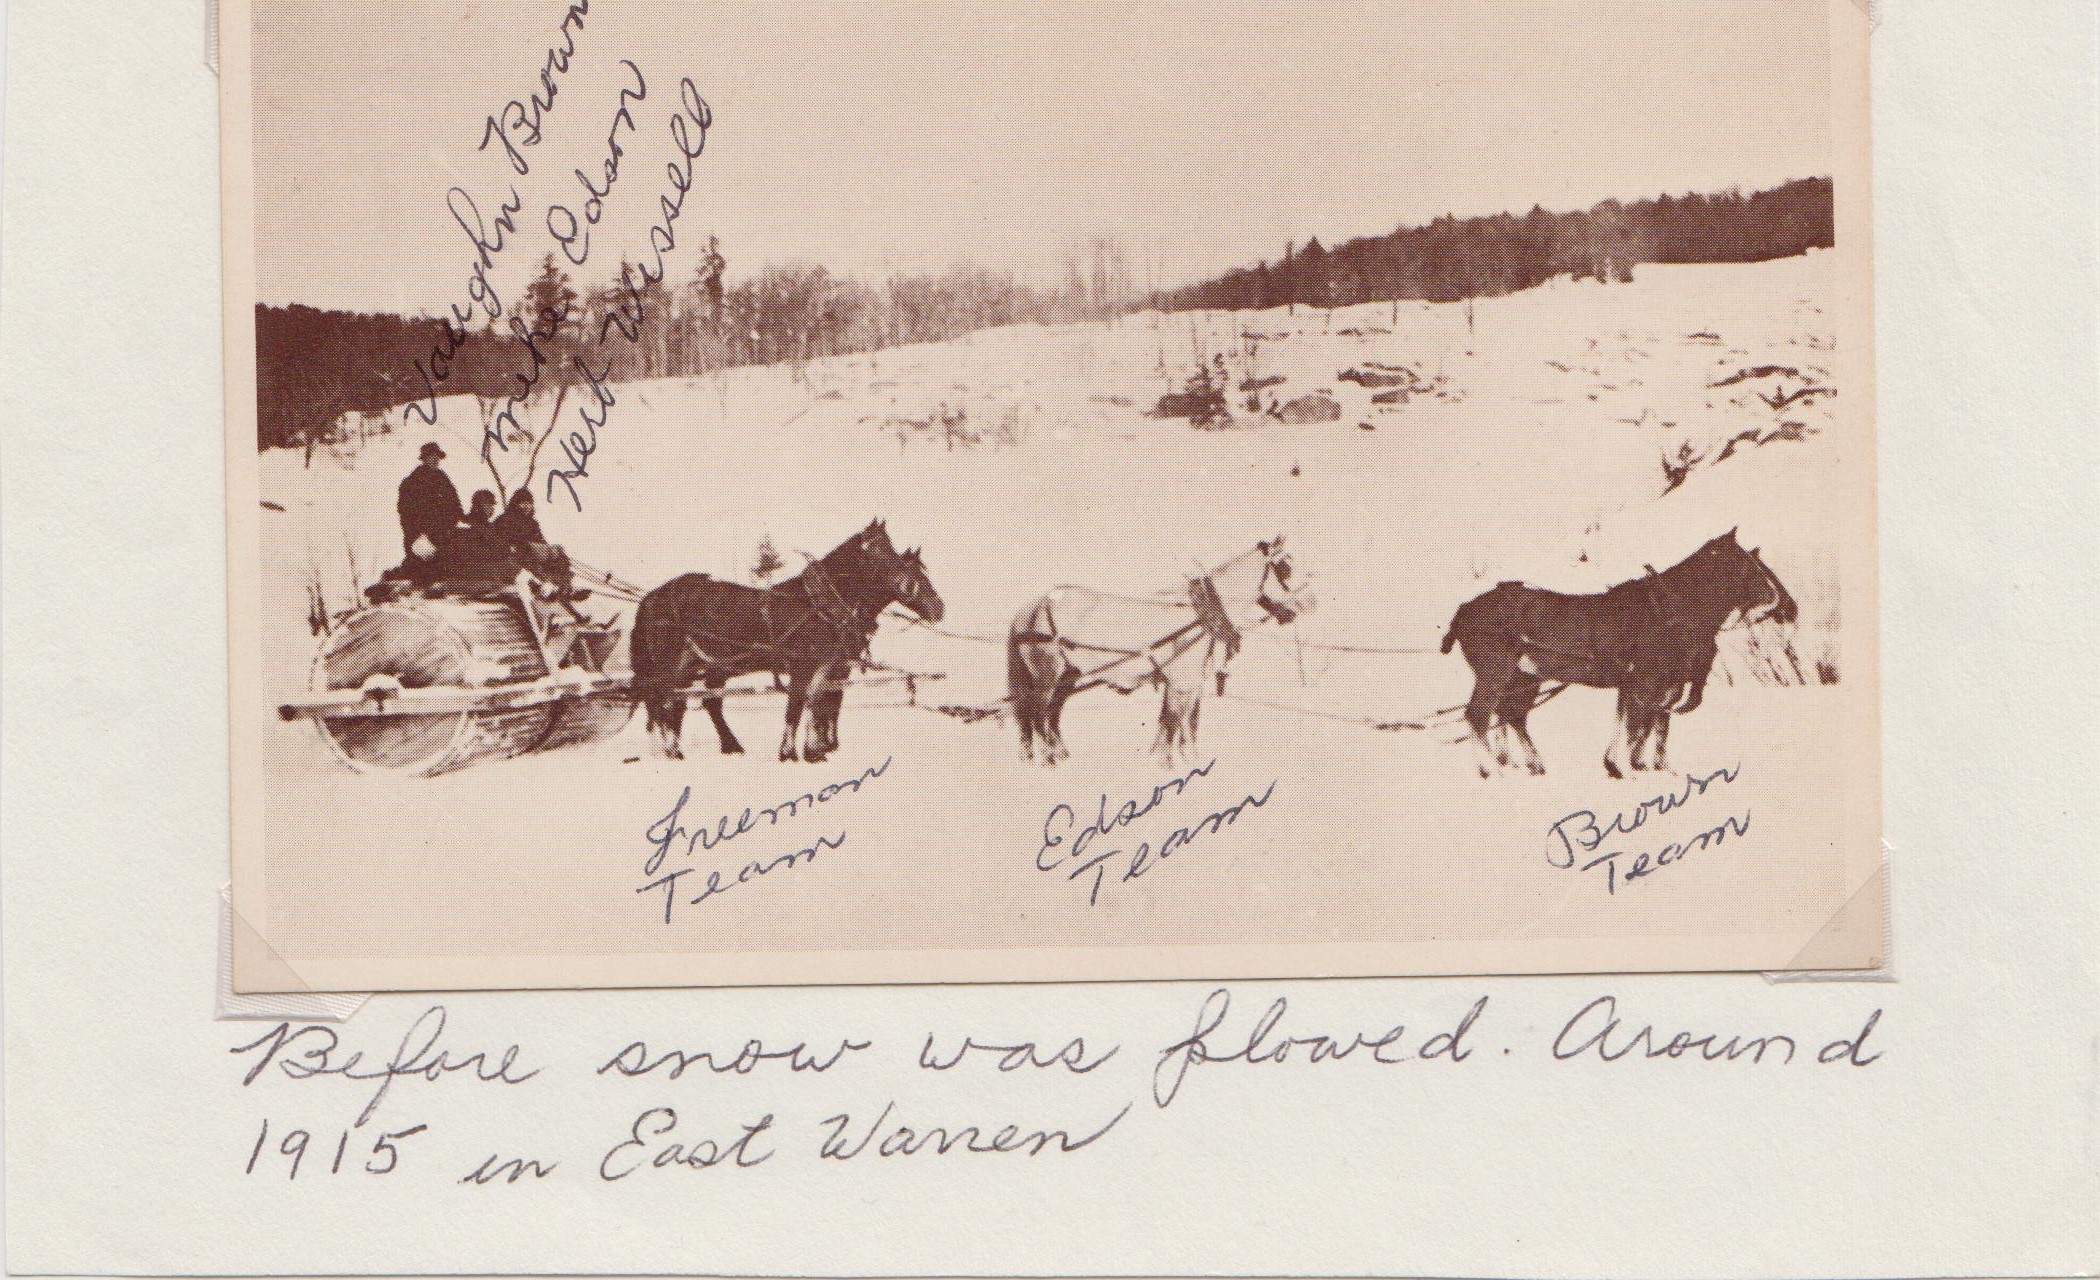 Vaughn Brown
Mike Edson
Herb Wissell
Freeman
Team
Edson
Team
Brown
Team
Before snow was plowed. Around
1915 in East Warren